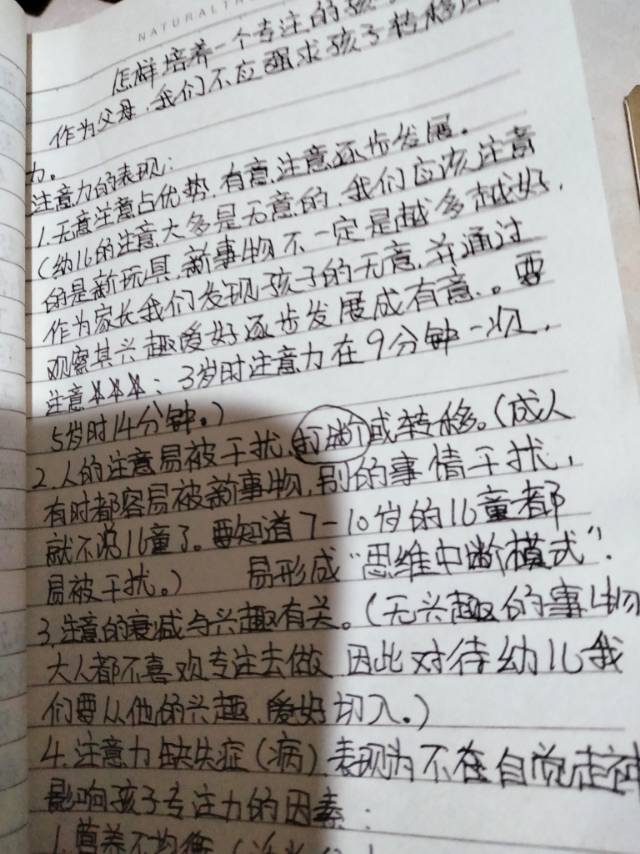 NATURALTH
怎样培养一个专注的孩
作为父母,我们不应强求孩子转移
力。
注意力的表现:
1.无意注意占优势,有意注意逐步发展。
(幼儿的注意大多是无意的,我们应该注意
的是新玩具,新事物不一定是越多越好,
作为家长我们发现孩子的无意,并通过
观察其兴趣爱好逐步发展成有意。要
注意☆☆☆:3岁时注意力在9分钟一次,
5岁时14分钟。)
2.人的注意易被干扰,打断或转移。(成人
有时都容易被新事物,别的事情干扰,
就不说儿童了。要知道7-10岁的儿童都
易被干扰。) 易形成“思维中断模式”.
3.注意的衰减与兴趣有关。(无兴趣的事物
大人都不喜欢专注去做 因此对待幼儿我
们要从他的兴趣,爱好切入。)
4.注意力缺失症(病),表现为不在自觉走神
影响孩子专注力的因素:
1.营养不均衡(